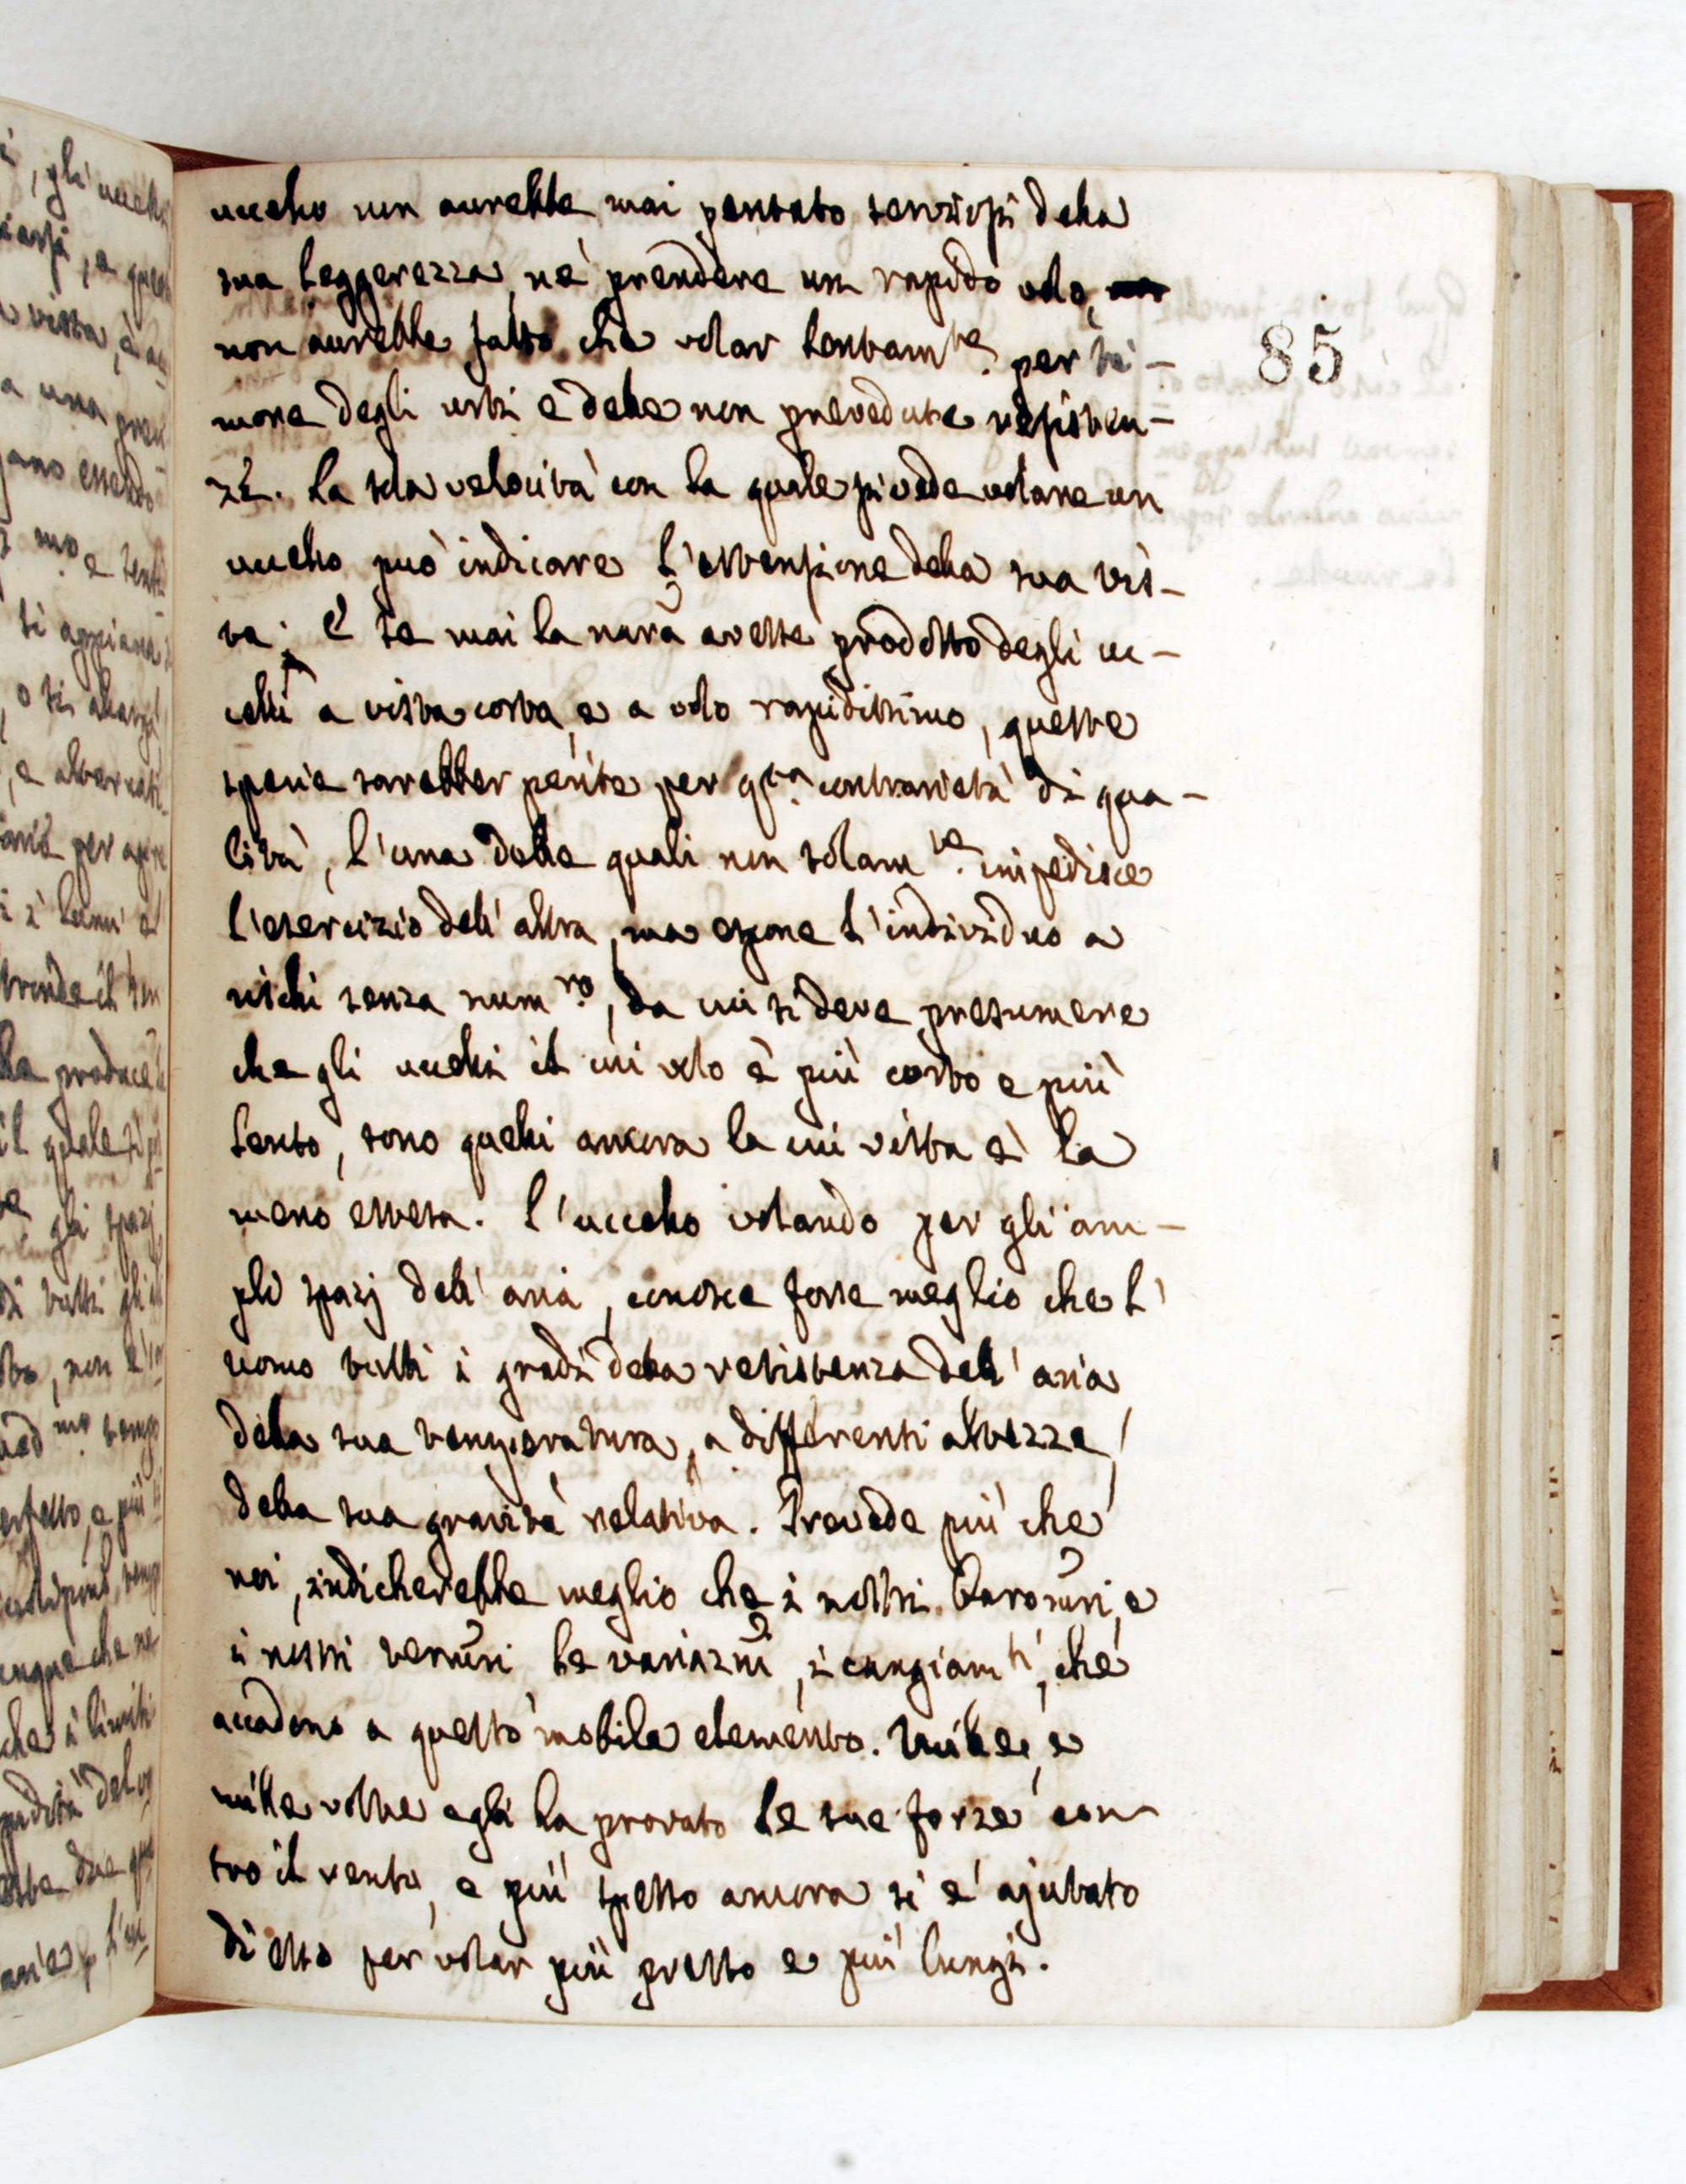 uccello non avrebbe mai pensato servirsi della
sua leggerezza, nè prendere un rapido volo,
non avrebbe fatto che volar lentam.te per ti-
more degli urti e delle non prevedute resisten-
ze. La sola velocità con la quale si vede volare un
uccello può indicare l'estensione della sua vis-
ta. E se mai la nãra avesse prodotto degli uc-
celli a vista corta, e a volo rapidissimo, queste
specie sarebber perite per q.ta contrarietà di qua-
lità, l'una delle quali non solam.te impedisce
l'esercizio dell'altra, ma espone l'individuo a
rischi senza num.ro, da cui si deve presumere
che gli uccelli il cui volo è più corto e più
lento, sono quelli ancora la cui vista è la
meno estesa. L'uccello volando per gli am-
pli spazj dell'aria, conosce forse meglio che l'
uomo tutti i gradi della resistenza dell'aria
della sua temperatura, a differenti altezze,
della sua gravità relativa. Prevede più che
noi, indicherebbe meglio che i nostri
i nostri le variazni, i cangiam.ti, che
accadono a questo mobile elemento. Mille, e
mille volte egli ha provato le sue forze con
tro il vento, e più spesso ancora si è ajutato
di esso per volar più presto e più lungi.
85